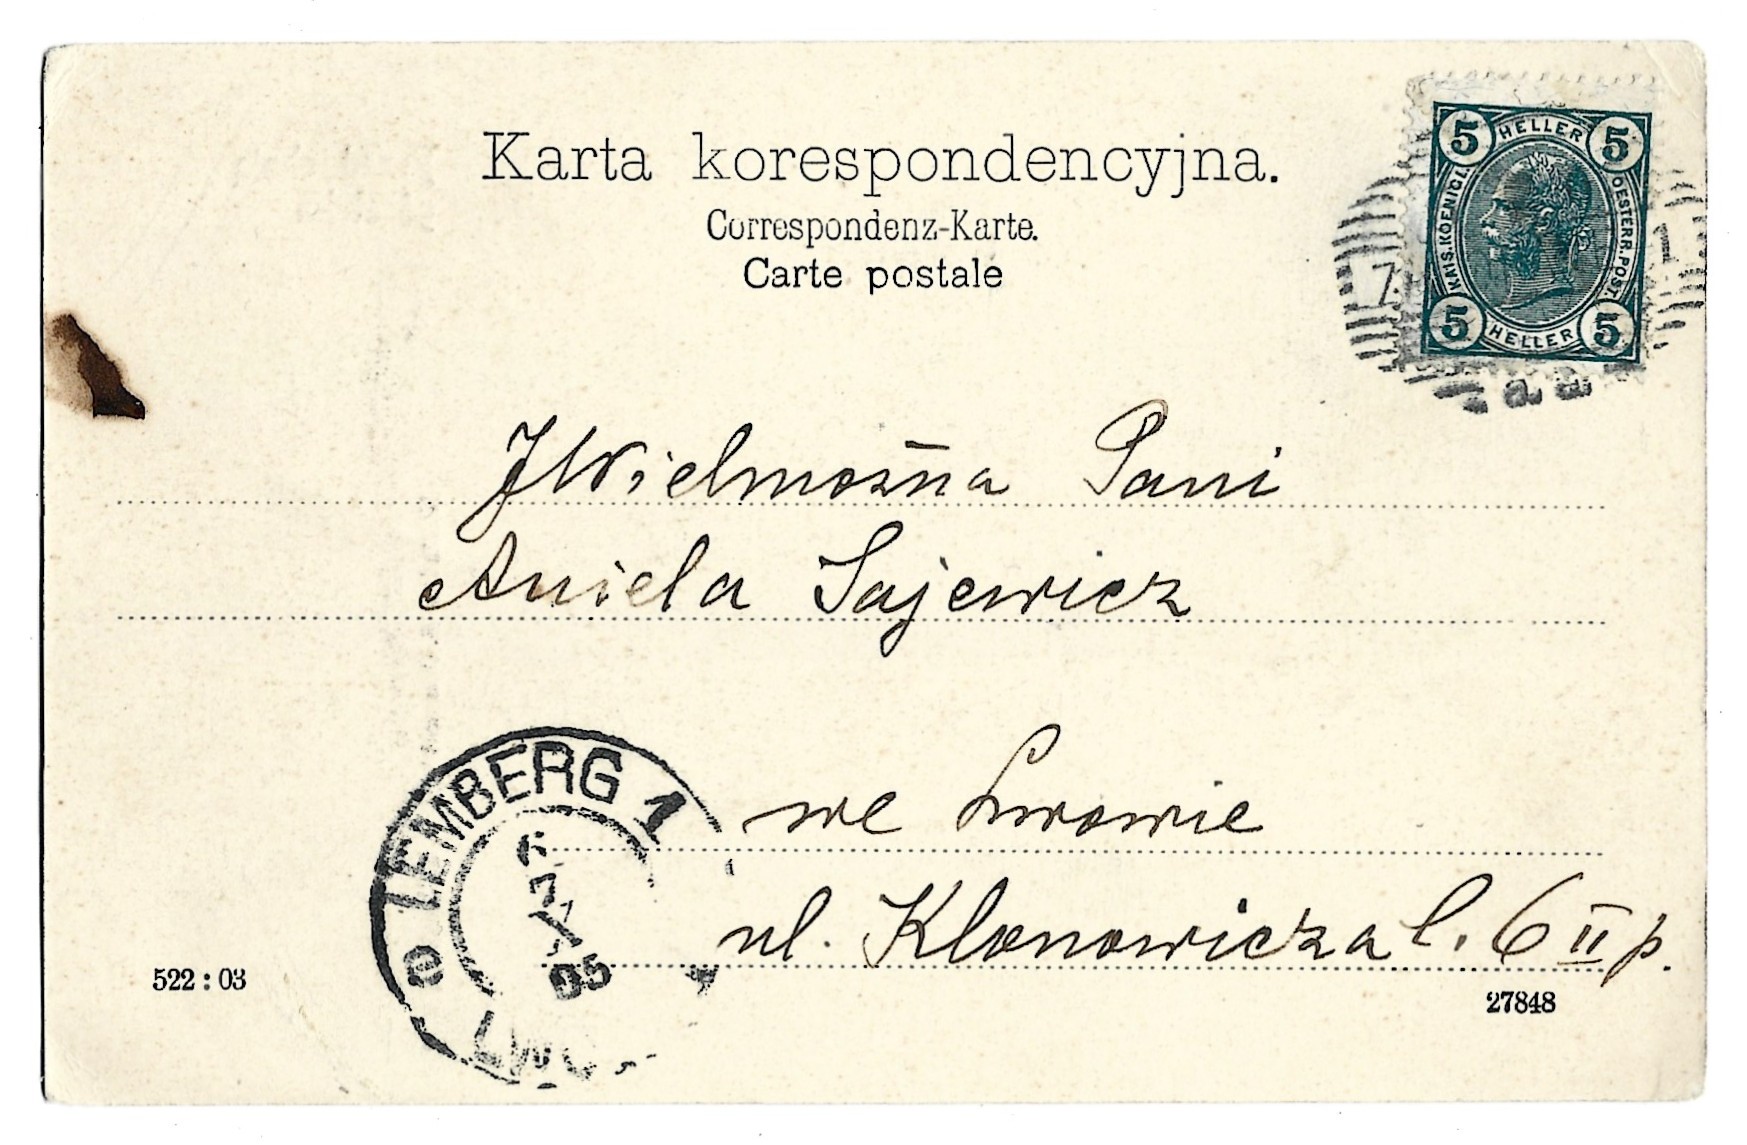 Karta korespondencyjna.
Correspondenz-Karte.
Carte postale
5 HELLER 5
KAIS. KOENIGL. OESTERR. POST.
5 HELLER 5
JWielmożna Pani
Aniela Sajewicz
we Lwowie
ul. Klonowicza l. 6 II p.
LEMBERG 1
6
7
X
05
e
522 : 03
27848